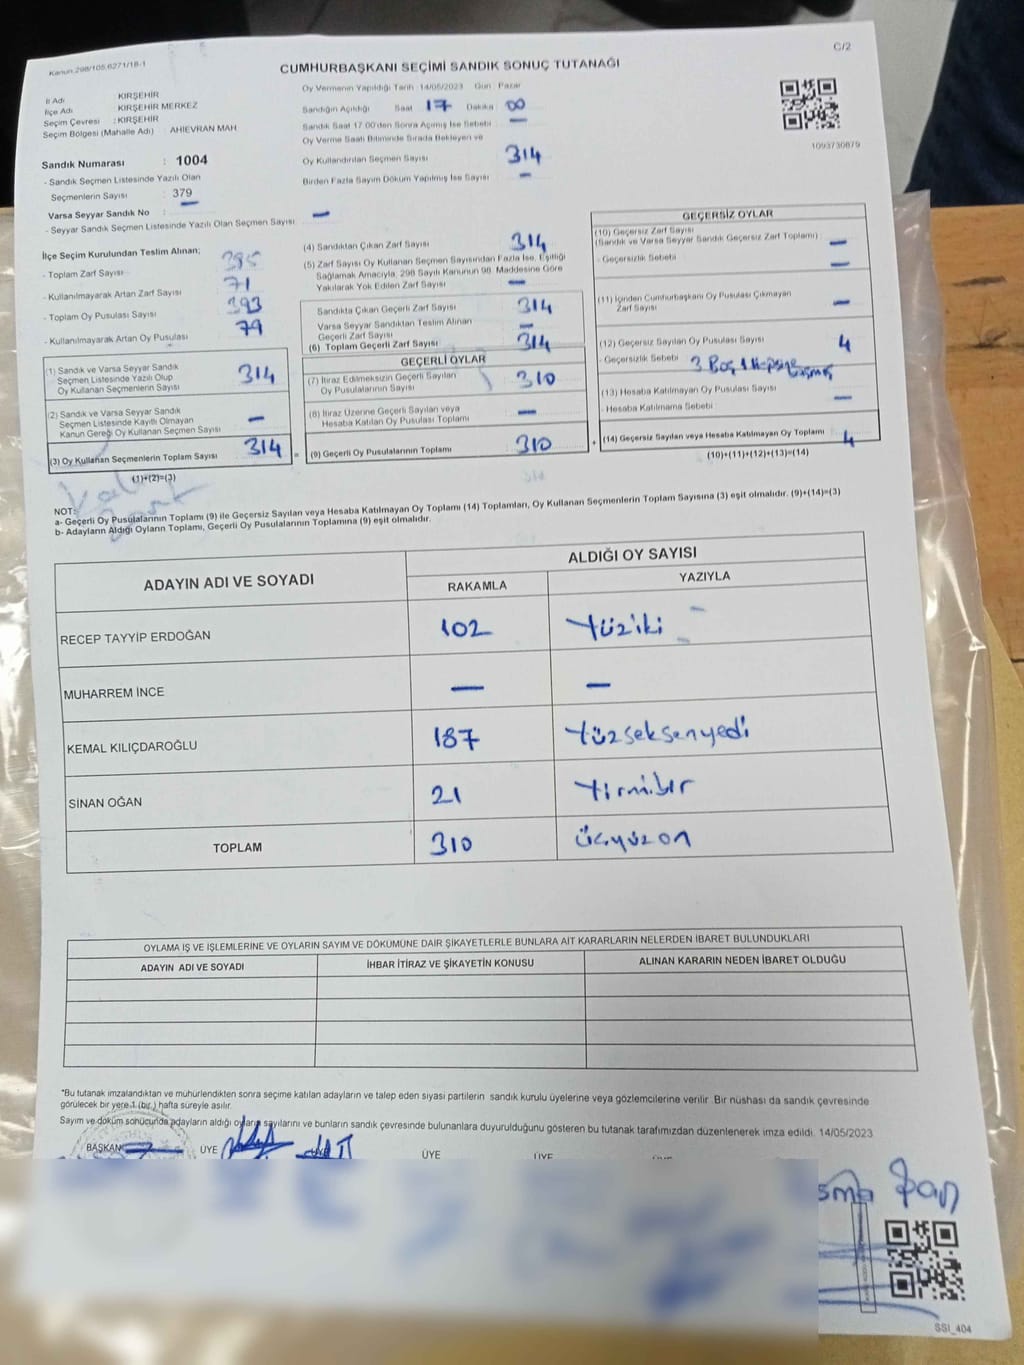 C/2
Kanun:298/105,6271/18-1
CUMHURBAŞKANI SEÇİMİ SANDIK SONUÇ TUTANAĞI
İl Adı : KIRŞEHİR
İlçe Adı : KIRŞEHİR MERKEZ
Seçim Çevresi : KIRŞEHİR
Seçim Bölgesi (Mahalle Adı) : AHİEVRAN MAH.
Oy Vermenin Yapıldığı Tarih :14/05/2023 Gün Pazar
Sandığın Açıldığı Saat 17 Dakika 00
Sandık Saat 17:00'den Sonra Açımış İse Sebebi : —
Oy Verme Saati Bitiminde Sırada Bekleyen ve
Oy Kullandırılan Seçmen Sayısı 314
Birden Fazla Sayım Döküm Yapılmış İse Sayısı —
1093730879
Sandık Numarası : 1004
- Sandık Seçmen Listesinde Yazılı Olan
Seçmenlerin Sayısı : 379
Varsa Seyyar Sandık No : —
- Seyyar Sandık Seçmen Listesinde Yazılı Olan Seçmen Sayısı : —
İlçe Seçim Kurulundan Teslim Alınan;
- Toplam Zarf Sayısı 385
- Kullanılmayarak Artan Zarf Sayısı 71
- Toplam Oy Pusulası Sayısı 393
- Kullanılmayarak Artan Oy Pusulası 79
(1) Sandık ve Varsa Seyyar Sandık
Seçmen Listesinde Yazılı Olup
Oy Kullanan Seçmenlerin Sayısı 314
(2) Sandık ve Varsa Seyyar Sandık
Seçmen Listesinde Kayıtlı Olmayan
Kanun Gereği Oy Kullanan Seçmen Sayısı —
(3) Oy Kullanan Seçmenlerin Toplam Sayısı 314
(1)+(2)=(3)
(4) Sandıktan Çıkan Zarf Sayısı 314
(5) Zarf Sayısı Oy Kullanan Seçmen Sayısından Fazla İse, Eşitliği
Sağlamak Amacıyla, 298 Sayılı Kanunun 98. Maddesine Göre
Yakılarak Yok Edilen Zarf Sayısı —
Sandıkta Çıkan Geçerli Zarf Sayısı 314
Varsa Seyyar Sandıktan Teslim Alınan
Geçerli Zarf Sayısı —
(6) Toplam Geçerli Zarf Sayısı 314
GEÇERLİ OYLAR
(7) İtiraz Edilmeksizin Geçerli Sayılan
Oy Pusulalarının Sayısı 310
(8) İtiraz Üzerine Geçerli Sayılan veya
Hesaba Katılan Oy Pusulası Toplamı —
= (9) Geçerli Oy Pusulalarının Toplamı 310 +
GEÇERSİZ OYLAR
(10) Geçersiz Zarf Sayısı
(Sandık ve Varsa Seyyar Sandık Geçersiz Zarf Toplamı) : —
- Geçersizlik Sebebi —
(11) İçinden Cumhurbaşkanı Oy Pusulası Çıkmayan
Zarf Sayısı —
(12) Geçersiz Sayılan Oy Pusulası Sayısı 4
- Geçersizlik Sebebi 3 Boş 1 Hepsine Basmış
(13) Hesaba Katılmayan Oy Pusulası Sayısı —
- Hesaba Katılmama Sebebi
(14) Geçersiz Sayılan veya Hesaba Katılmayan Oy Toplamı 4
(10)+(11)+(12)+(13)=(14)
NOT:
a- Geçerli Oy Pusulalarının Toplamı (9) ile Geçersiz Sayılan veya Hesaba Katılmayan Oy Toplamı (14) Toplamları, Oy Kullanan Seçmenlerin Toplam Sayısına (3) eşit olmalıdır. (9)+(14)=(3)
b- Adayların Aldığı Oyların Toplamı, Geçerli Oy Pusulalarının Toplamına (9) eşit olmalıdır.
ADAYIN ADI VE SOYADI ALDIĞI OY SAYISI
RAKAMLA YAZIYLA
RECEP TAYYİP ERDOĞAN 102 Yüziki
MUHARREM İNCE — —
KEMAL KILIÇDAROĞLU 187 Yüzseksenyedi
SİNAN OĞAN 21 Yirmibir
TOPLAM 310 Üçyüzon
OYLAMA İŞ VE İŞLEMLERİNE VE OYLARIN SAYIM VE DÖKÜMÜNE DAİR ŞİKAYETLERLE BUNLARA AİT KARARLARIN NELERDEN İBARET BULUNDUKLARI
ADAYIN ADI VE SOYADI İHBAR İTİRAZ VE ŞİKAYETİN KONUSU ALINAN KARARIN NEDEN İBARET OLDUĞU
*Bu tutanak imzalandıktan ve mühürlendikten sonra seçime katılan adayların ve talep eden siyasi partilerin sandık kurulu üyelerine veya gözlemcilerine verilir. Bir nüshası da sandık çevresinde
görülecek bir yere 1 (bir ) hafta süreyle asılır.
Sayım ve döküm sonucunda adayların aldığı oyların sayılarını ve bunların sandık çevresinde bulunanlara duyurulduğunu gösteren bu tutanak tarafımızdan düzenlenerek imza edildi. 14/05/2023
BAŞKAN ÜYE ÜYE ÜYE
SSI_404